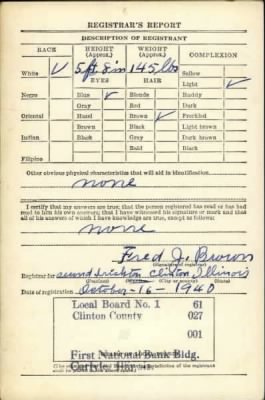 REGISTRAR'S REPORT
DESCRIPTION OF REGISTRANT
RACE HEIGHT (Approx.) WEIGHT (Approx.) COMPLEXION
White ✓ 5 ft 8 in 145 lbs Sallow
EYES HAIR Light ✓
Negro Blue ✓ Blonde Ruddy
Gray Red Dark
Oriental Hazel Brown ✓ Freckled
Brown Black Light brown
Indian Black Gray Dark brown
Bald Black
Filipino
Other obvious physical characteristics that will aid in identification
none
I certify that my answers are true; that the person registered has read or has had read to him his own answers; that I have witnessed his signature or mark and that all of his answers of which I have knowledge are true, except as follows:
none
Fred J. Brown
Registrar for Clinton Illinois
Date of registration October-16-1940
Local Board No. 1 61
Clinton County 027
001
First National Bank Bldg.